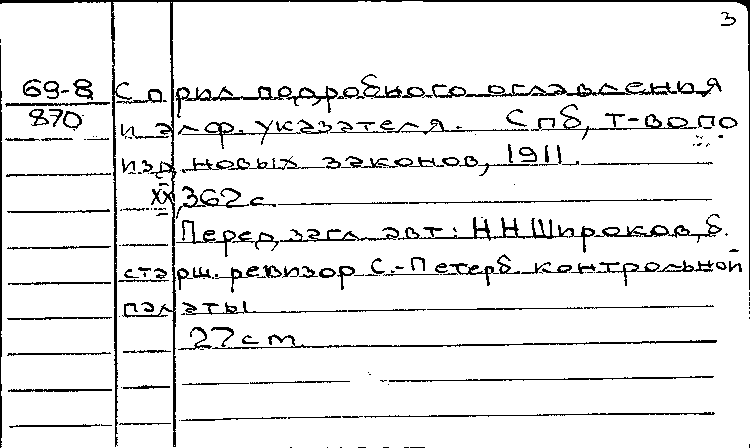 3
69-8 С прил подробного оглавления
870 и алф. указателя. Спб, т-во по
изд. новых законов, 1911.
XX, 362 с.
Перед загл. авт: НН Широков, б.
старш. ревизор С.-Петерб. контрольной
палаты.
27 cm